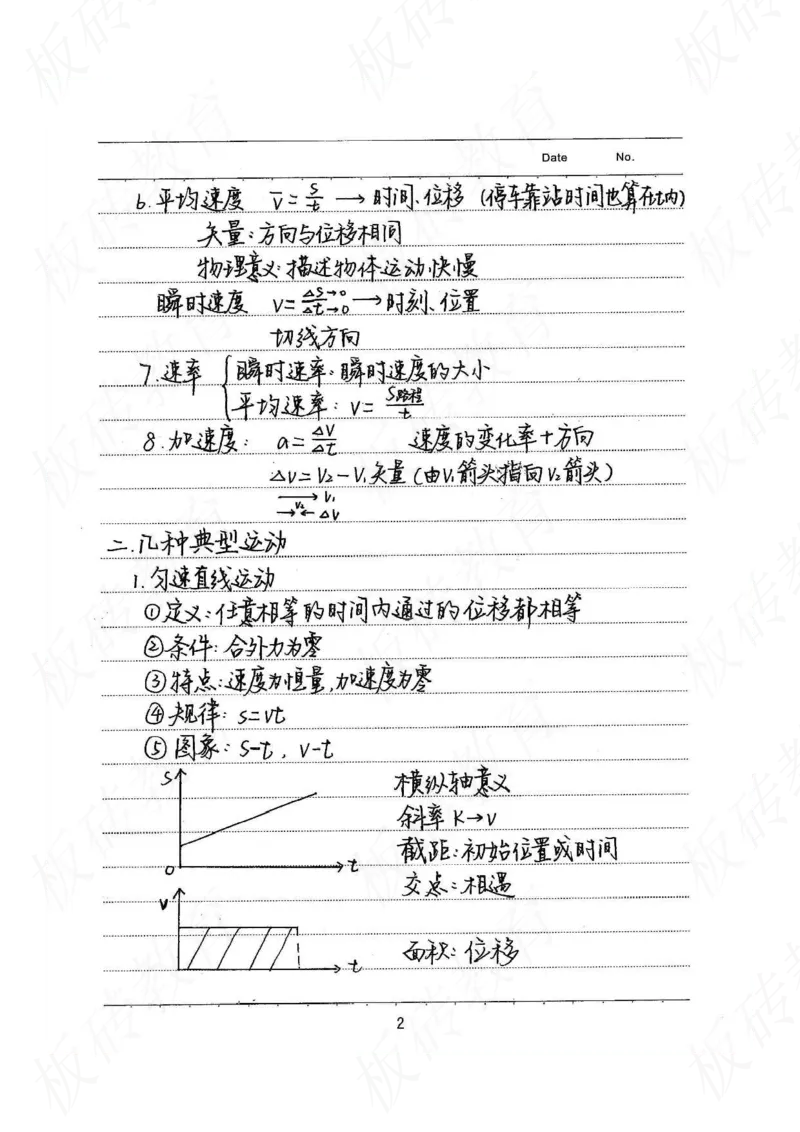 Date No.
6.平均速度 v̄=s/t → 时间、位移 (停车靠站时间也算在t内)
矢量:方向与位移相同
物理意义:描述物体运动快慢
瞬时速度 v=Δs→0/Δt→0 → 时刻、位置
切线方向
7.速率 { 瞬时速率:瞬时速度的大小
平均速率: v=S路程/t
8.加速度: a=Δv/Δt 速度的变化率+方向
Δv=V₂-V₁矢量(由V₁箭头指向V₂箭头)
→ V₁
→ V₂ ← ΔV
二.几种典型运动
1.匀速直线运动
①定义:任意相等的时间内通过的位移都相等
②条件:合外力为零
③特点:速度为恒量,加速度为零
④规律: s=vt
⑤图象: s-t, v-t
S
横纵轴意义
斜率 K→v
截距:初始位置或时间
0 t
交点:相遇
V
面积:位移
t
2
板砖教育
板砖教育
板砖教育
板砖教育
板砖教育
板砖教育